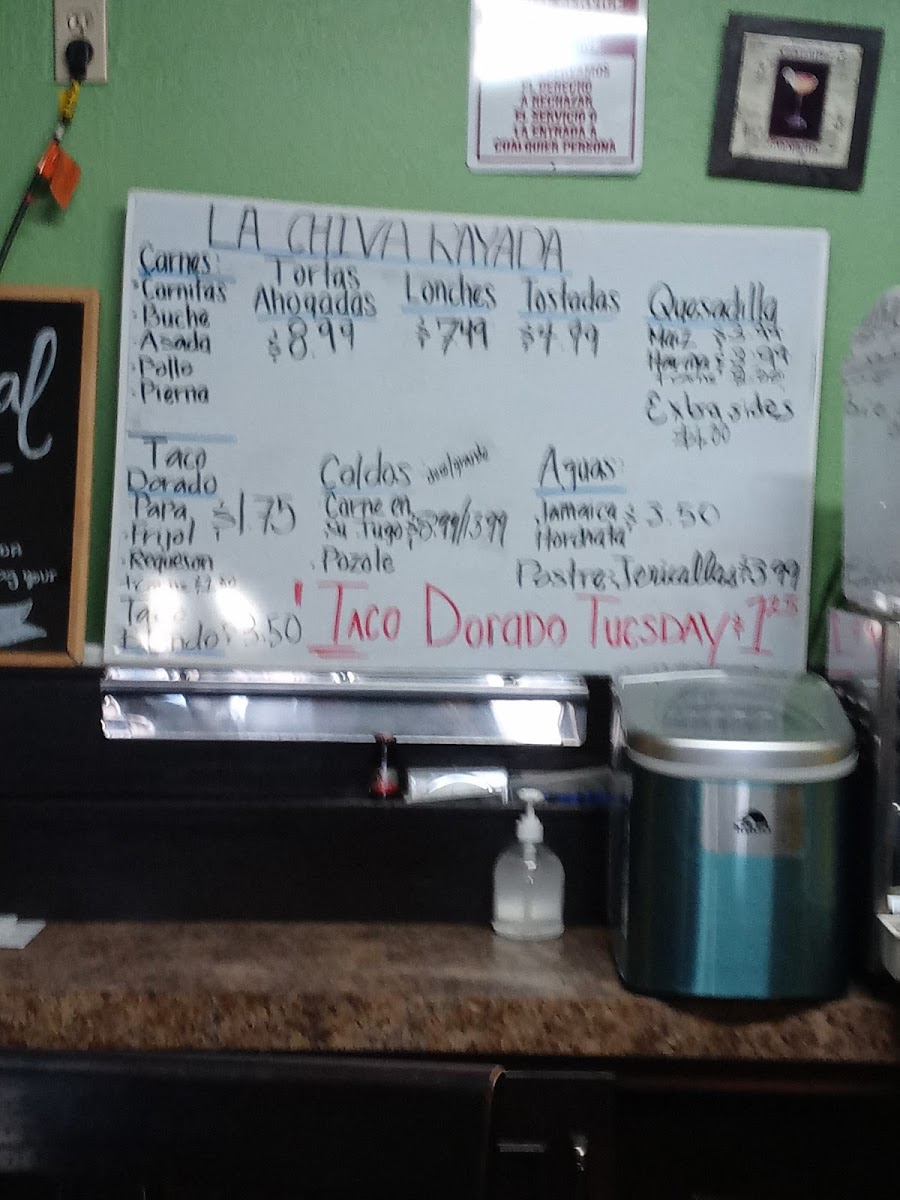 EL DERECHO
A RECHAZAR
EL SERVICIO O
LA ENTRADA A
CUALQUIER PERSONA
LA CHIVA RAYADA
Carnes:
·Carnitas
·Buche
·Asada
·Pollo
·Pierna
Tortas
Ahogadas
$8.99
Lonches
$7.49
Tostadas
$4.99
Quesadilla
Maiz $3.99
Harina $3.99
Extra sides
$1.00
Taco
Dorado
Papa
·Frijol
·Requeson
$1.75
Taco
$3.50
Caldos
Carne en
Su Jugo $8.99/13.99
·Pozole
Aguas:
Jamaica $3.50
Horchata
Postre: Jericallas $3.99
TACO DORADO TUESDAY $1.25
al